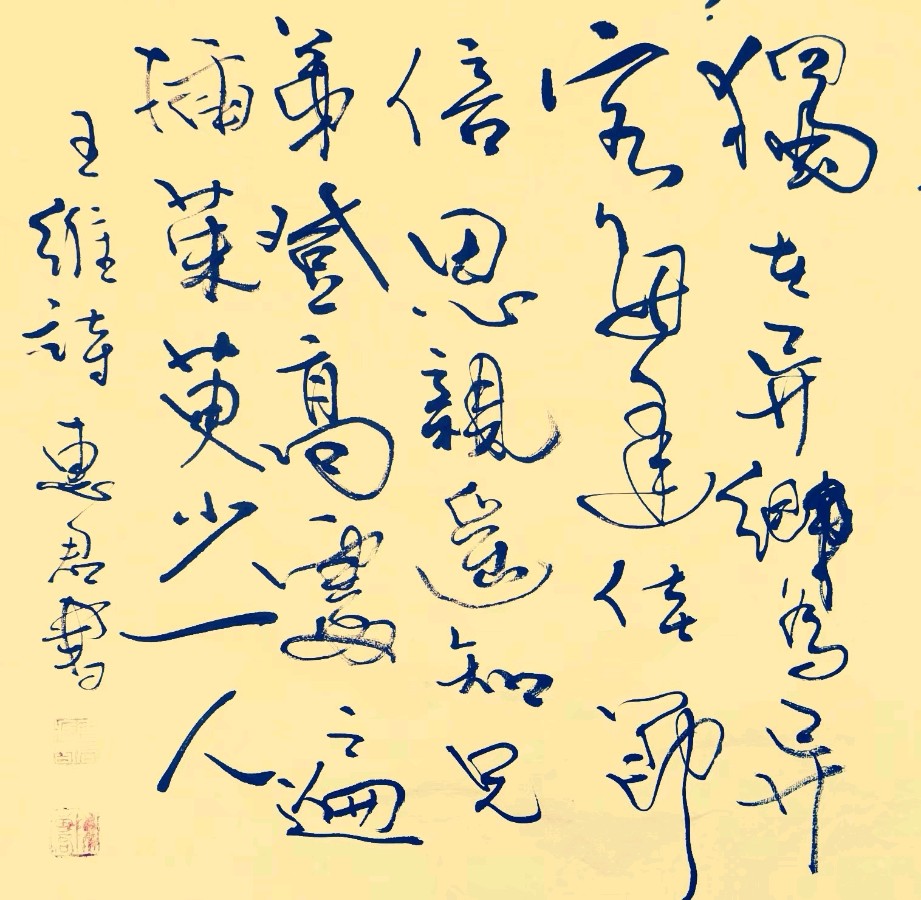 獨在异鄉為异
客每逢佳節
倍思親遥知兄
弟登高處遍
插茱萸少一人
王維詩 惠君書